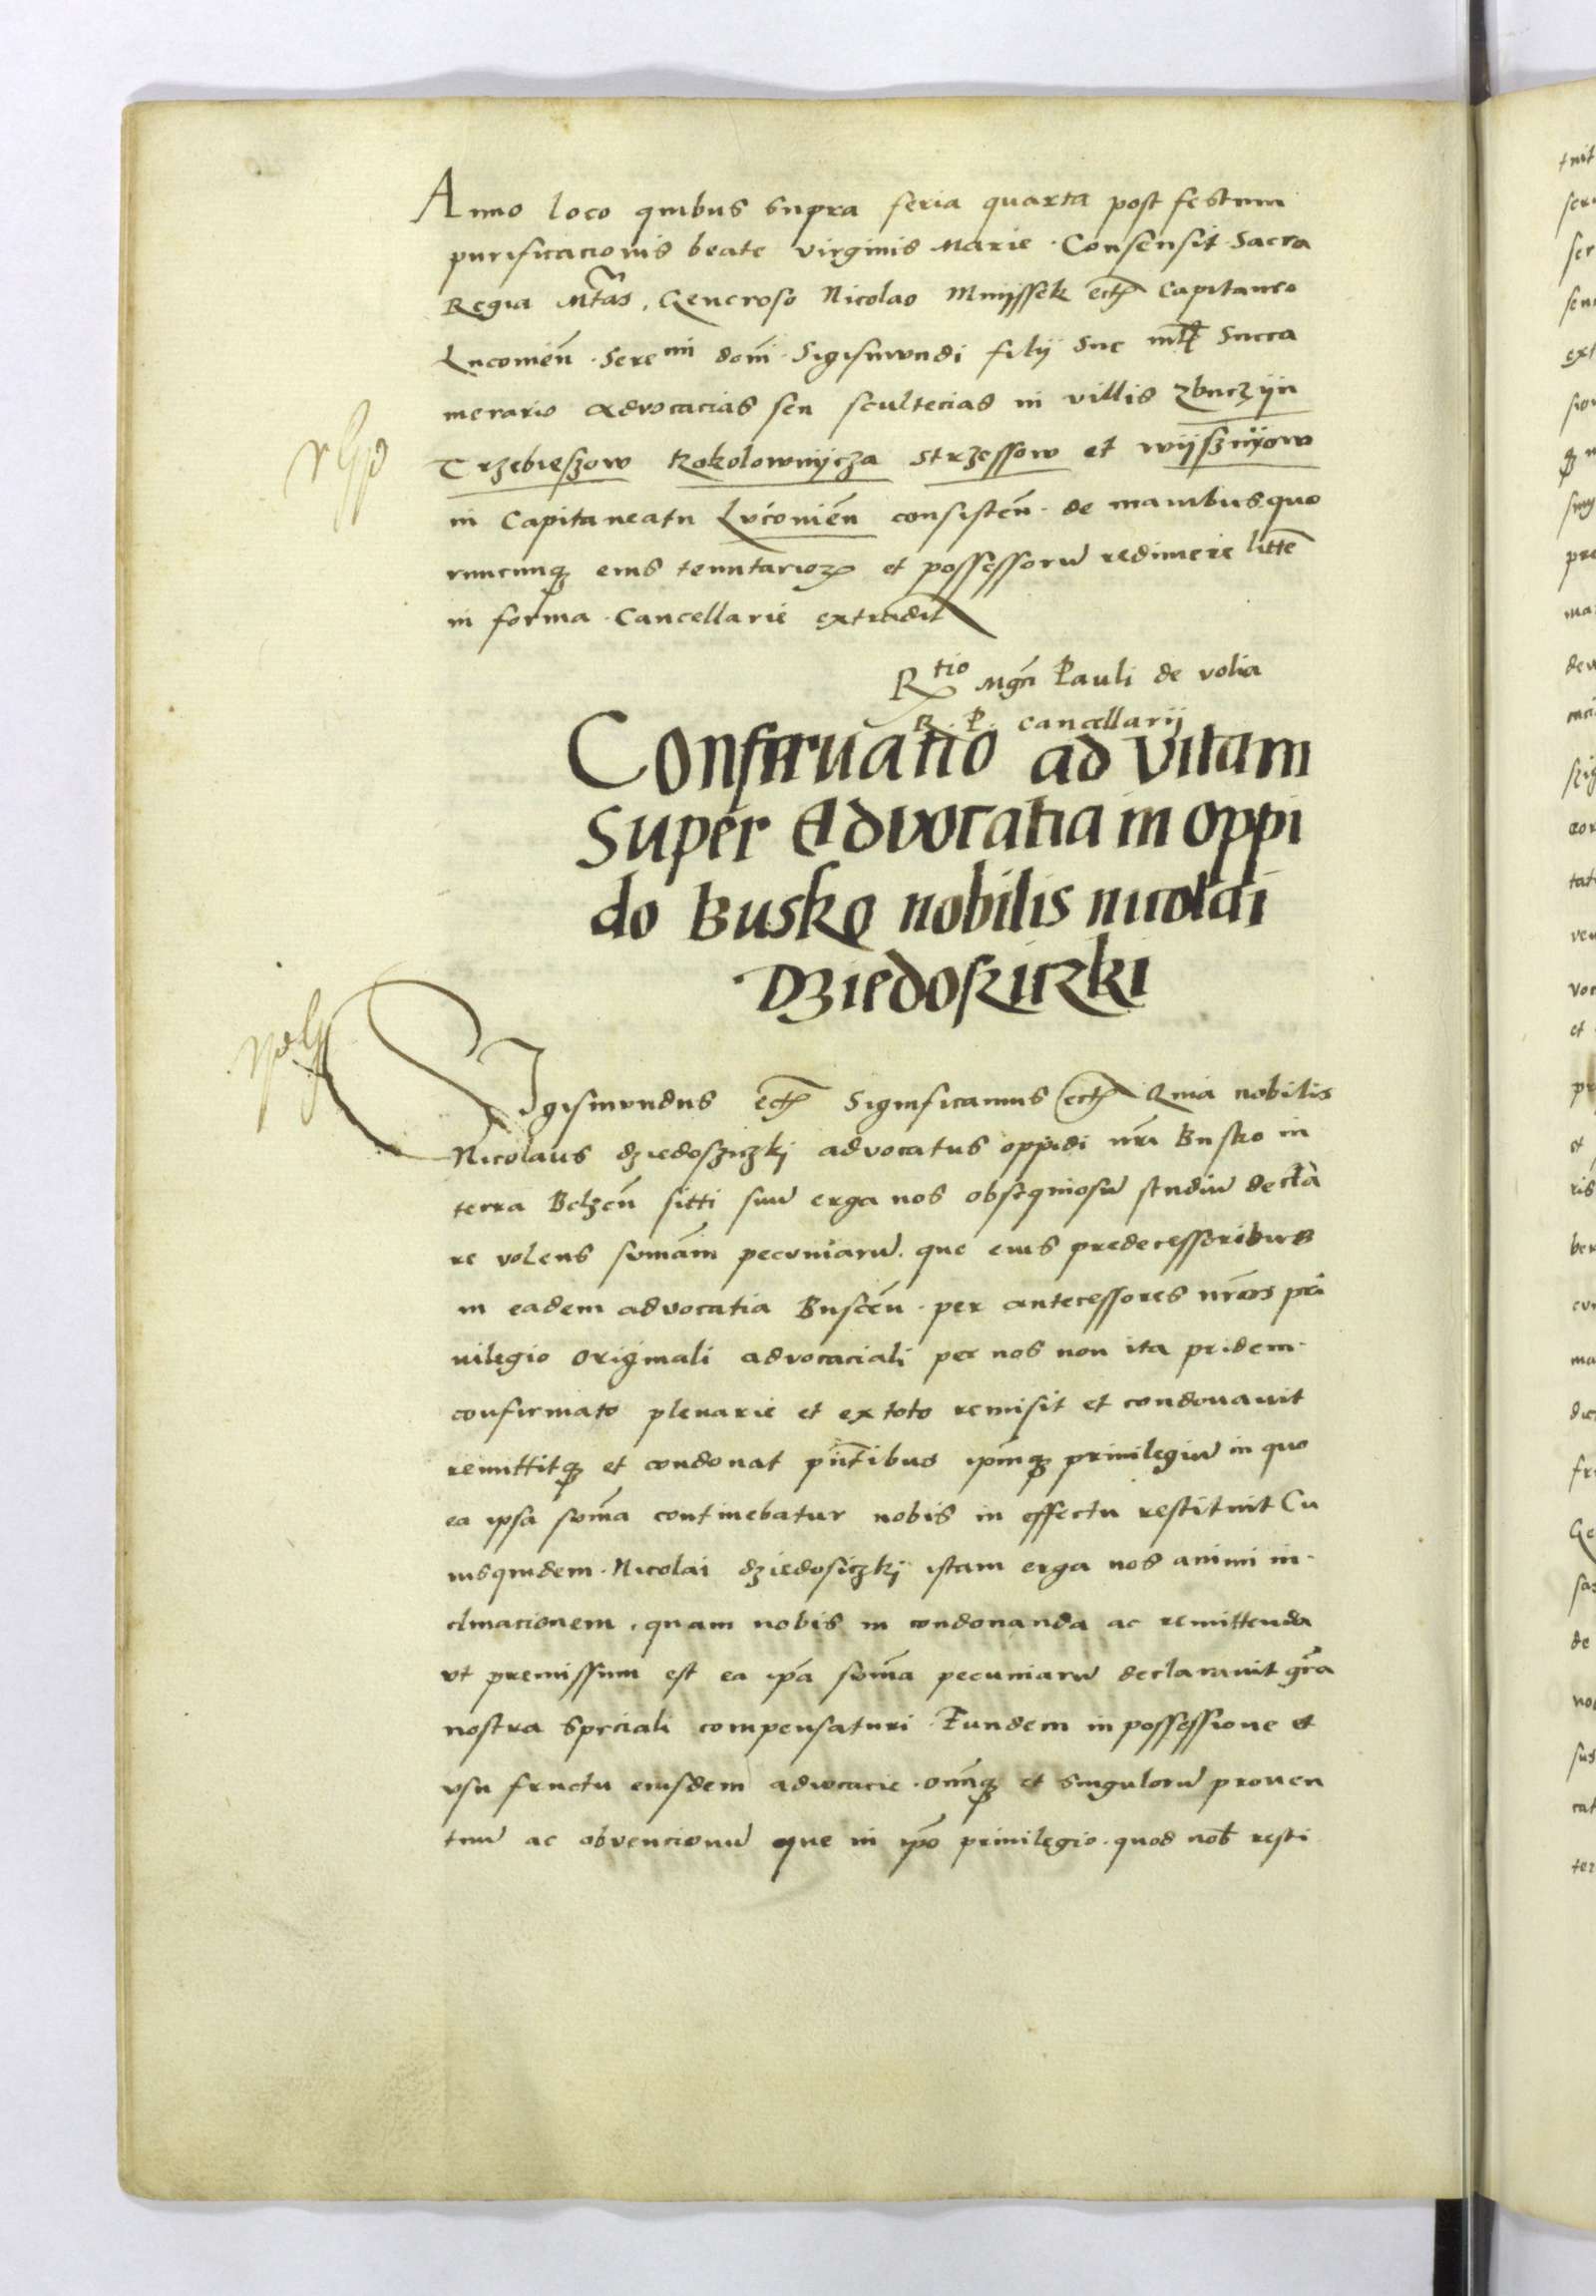 Anno loco quibus supra feria quarta post festum
purificacionis beate virginis Marie. Consensit Sacra
Regia Mtas. Generoso Nicolao Mnyssek etc Capitaneo
Lucovien. Sereni dom. Sigismundi filij Sue mtis Succa
merario advocacias seu scultecias in villis Zbuczyn
Trzebieszow Kokolownycza Strzessow et wyssnyow
in Capitaneatu Lucovien consisten. de manibus quo
rumcunq eius tenutarior et possessoru redimere litte
in forma. Cancellarie extradit
Rtio Mgci Pauli de volia
R. P. cancellarij
Confirmatio ad vitam
super Advocatia in oppi
do Buske nobilis nicolai
Dziedosziczki
Sigismundus etc Significamus etc Quia nobilis
Nicolaus dziedosziczkj advocatus oppidi nri Busko in
terra Belzen sitti suu erga nos obsequiosu studiu decla
re volens sumam pecuniaru. que eius predecessoribus
in eadem advocatia Buscen. per antecessores nros pri
uilegio originali advocaciali per nos non ita pridem.
confirmato plenarie et ex toto remisit et condonauit
remittitq et condonat pntibus ipmq priuilegiu in quo
ea ipsa soma continebatur nobis in effectu restituit Cu
iusquidem. Nicolai dziedosiczkj istam erga nos animi in.
clinacionem, quam nobis in condonanda ac remittenda
vt premissum est ea ipa soma pecuniaru declarauit gra
nostra speciali compensaturi. Eundem in possessione et
vsu fructu eiusdem advocacie. omiq et singuloru prouen
tuu ac obvencionu que in ipo priuilegio. quod nob resti